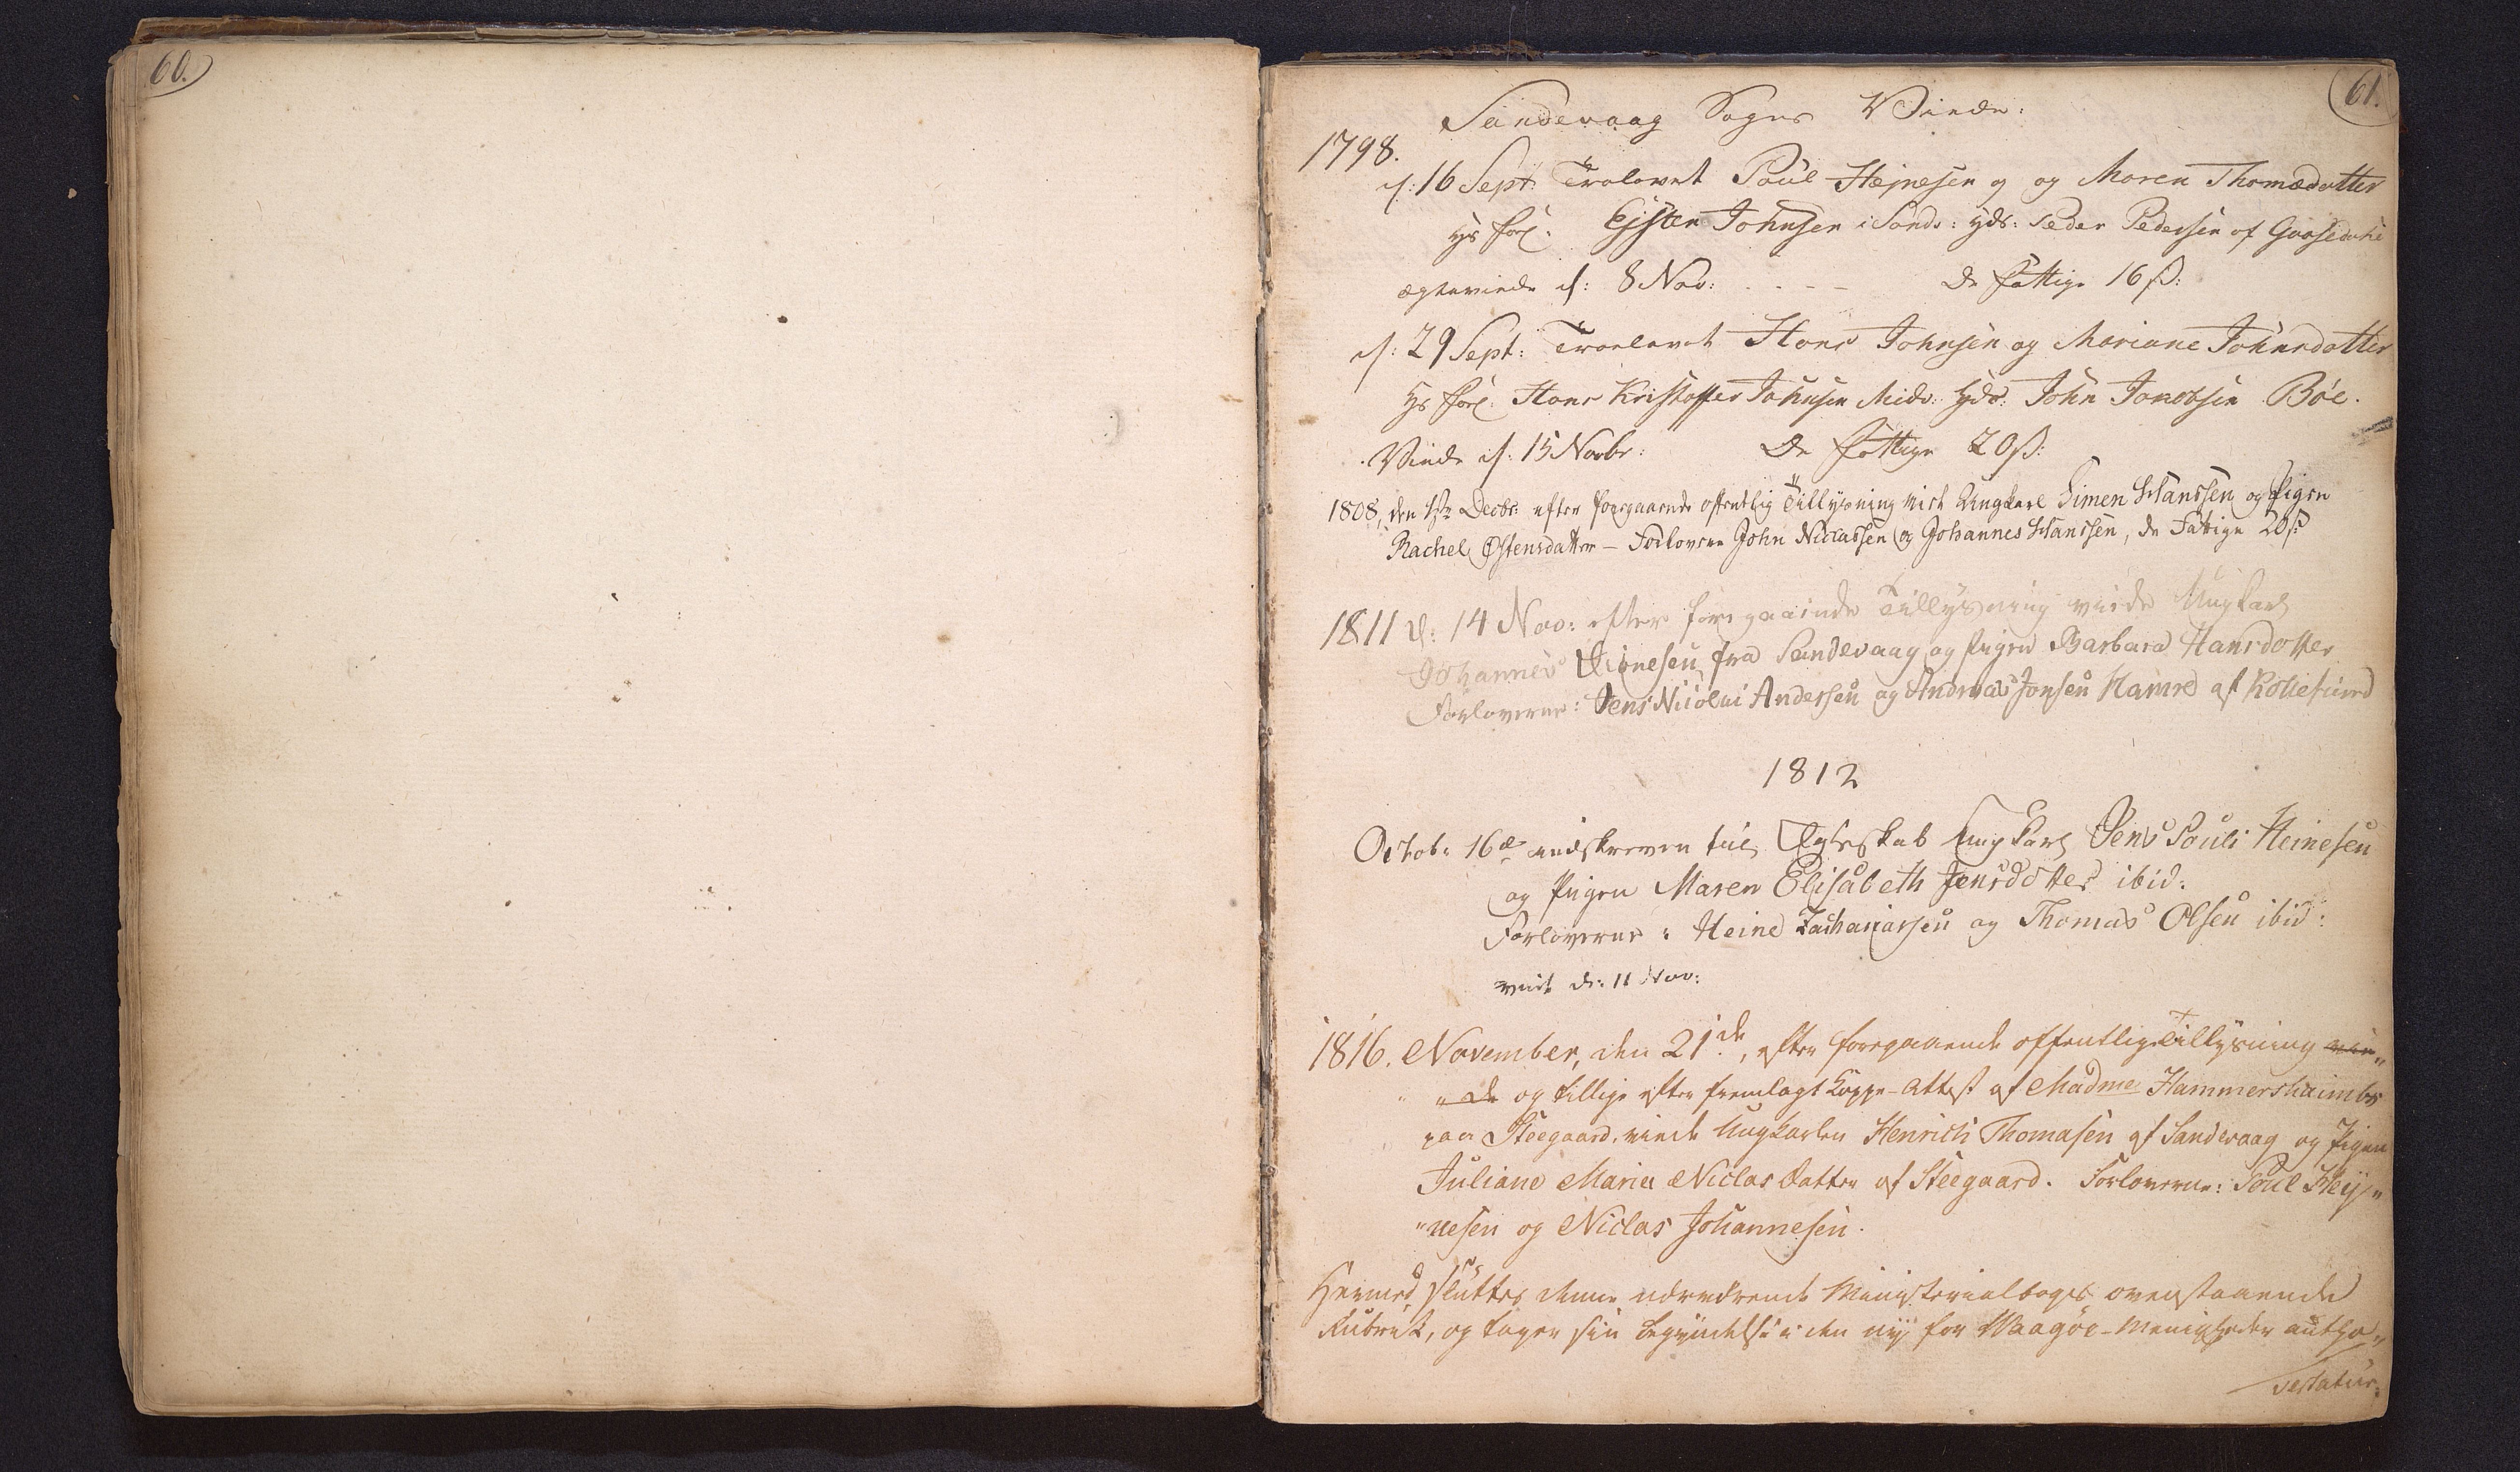 60.
61.
Sandevaag Sogns Viede:
1798.
d: 16 Sept: Trolovet Poül Hejnesen og og Maren Thomædatter
hs forl: Ejsten Johnsen i Sandv: hds: Peder Pedersen af Gaasedahl
ægteviede d: 8 Nov: - - - - De fattige 16 ß:
d: 29 Sept: Troelovet Hans Johnsen og Mariane Johnsdatter
hs forl. Hans Kristoffer Johnsen Midv: hds: John Jacobsen Bøe.
Viede d: 15 Novbr: De fattige 20 ß:
1808, den Decbr: efter foregaaende offentlig Tillysning viet Ungkarl Simen Hanssen og Pigen
Rachel Østensdatter – Forlovere John Niclassen og Johannes Hanssen, de Fattige 20 ß
1811 d: 14 Nov: efter foregaaende Tillysning viede Ungkarl
Johannes fra Sandevaag og Pigen Barbara Hansdatter
Forloverne: Jens Nicolai Andersen og Andreas Jonsen Hamre af Kollefiord
1812
Octob: 16de indskreven til Ægteskab Ungkarl Jens Pouli Heinesen
og Pigen Maren Elisabeth Jensdatter ibid:
Forloverne: Heine Zachariasen og Thomas Olsen ibid:
viet d: 11 Nov:
1816. November, den 21de, efter foregaaende offentlig Tillysning vie„
„de og tillige efter fremlagt Koppe-Attest af Madme Hammershaimbs
paa Steegaard, viede Ungkarlen Henrich Thomasen af Sandevaag og Pigen
Juliane Maria Niclasdatter af Steegaard. Forloverne: Poul Heij„
„nesen og Niclas Johannesen.
Hermed sluttes denne nærværende Ministerialbogs ovenstaaende
Rubrik, og tager sin Begyndelse i den ny for Waagøe-Menigheder autho„